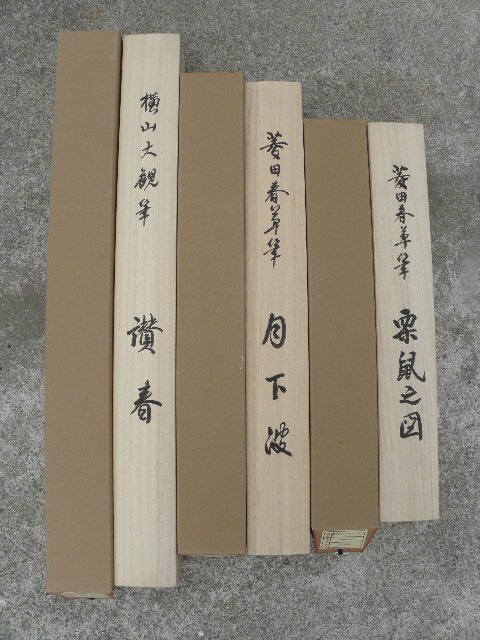 横山大観筆
讃春
菱田春草筆
月下波
菱田春草筆
栗鼠之図